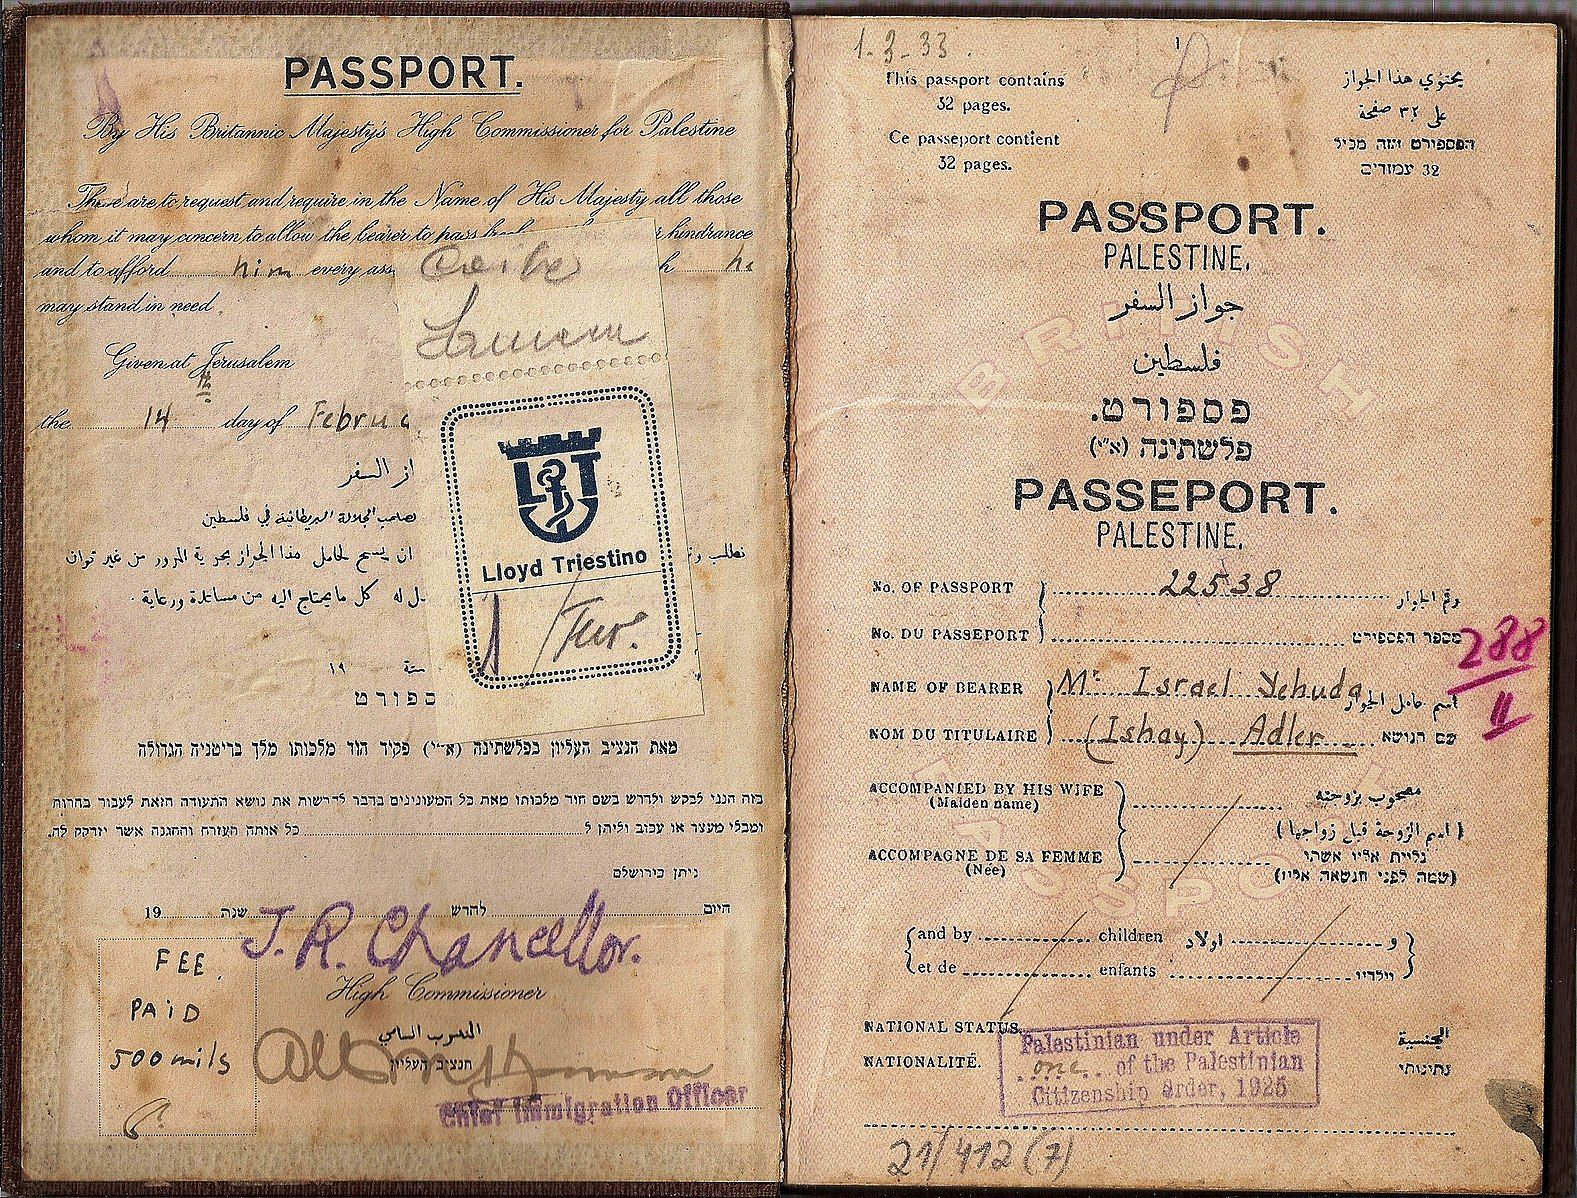 PASSPORT.
By His Britannic Majesty's High Commissioner for Palestine
These are to request and require in the Name of His Majesty all those
whom it may concern to allow the bearer to pass hindrance
and to afford him every ass h he
may stand in need
Given at Jerusalem
the 14th day of Februa
از السفر
لصاحب الجلالة البريطانية في فلسطين
نطلب ان يسمح لحامل هذا الجواز بحرية المرور من غير توان
ل له كل ما يحتاج اليه من مساعدة ورعاية.
سنة ١٩
ספורט
מאת הנציב העליון בפלשתינה (א״י) פקיד הוד מלכותו מלך בריטניה הגדולה
בזה הנני לבקש ולדרש בשם הוד מלכותו מאת כל המעונינים בדבר להרשות את נושא התעודה הזאת לעבור בחרות
ומבלי מעצר או עכוב וליתן ל כל אותה העזרה וההגנה אשר יזדקק לה.
ניתן בירושלם
היום לחדש שנת 19
J. R. Chancellor.
High Commissioner
المندوب السامي
הנציב העליון
Chief Immigration Officer
FEE
PAID
500 mils
LT
Lloyd Triestino
1-3-33
1
This passport contains
32 pages.
Ce passeport contient
32 pages.
يحتوي هذا الجواز
على ٣٢ صفحة
הפספורט הזה מכיל
32 עמודים
PASSPORT.
PALESTINE.
جواز السفر
فلسطين
פספורט.
פלשתינה (א״י)
PASSEPORT.
PALESTINE.
BRITISH
PASSPO
No. OF PASSPORT 22538 رقم الجواز
No. DU PASSEPORT מספר הפספורט
288
II
NAME OF BEARER Mr. Israel Yehuda اسم حامل الجواز
NOM DU TITULAIRE (Ishay) Adler שם הנושא
ACCOMPANIED BY HIS WIFE مصحوب بزوجته
(Maiden name) (اسم الزوجة قبل زواجها)
ACCOMPAGNE DE SA FEMME נלוית אליו אשתו
(Née) (שמה לפני הנשאה אליו)
and by children و اولاد
et de enfants וילדיו
NATIONAL STATUS الجنسية
NATIONALITÉ. נתינותו
Palestinian under Article
one of the Palestinian
Citizenship Order, 1925
21/412 (7)